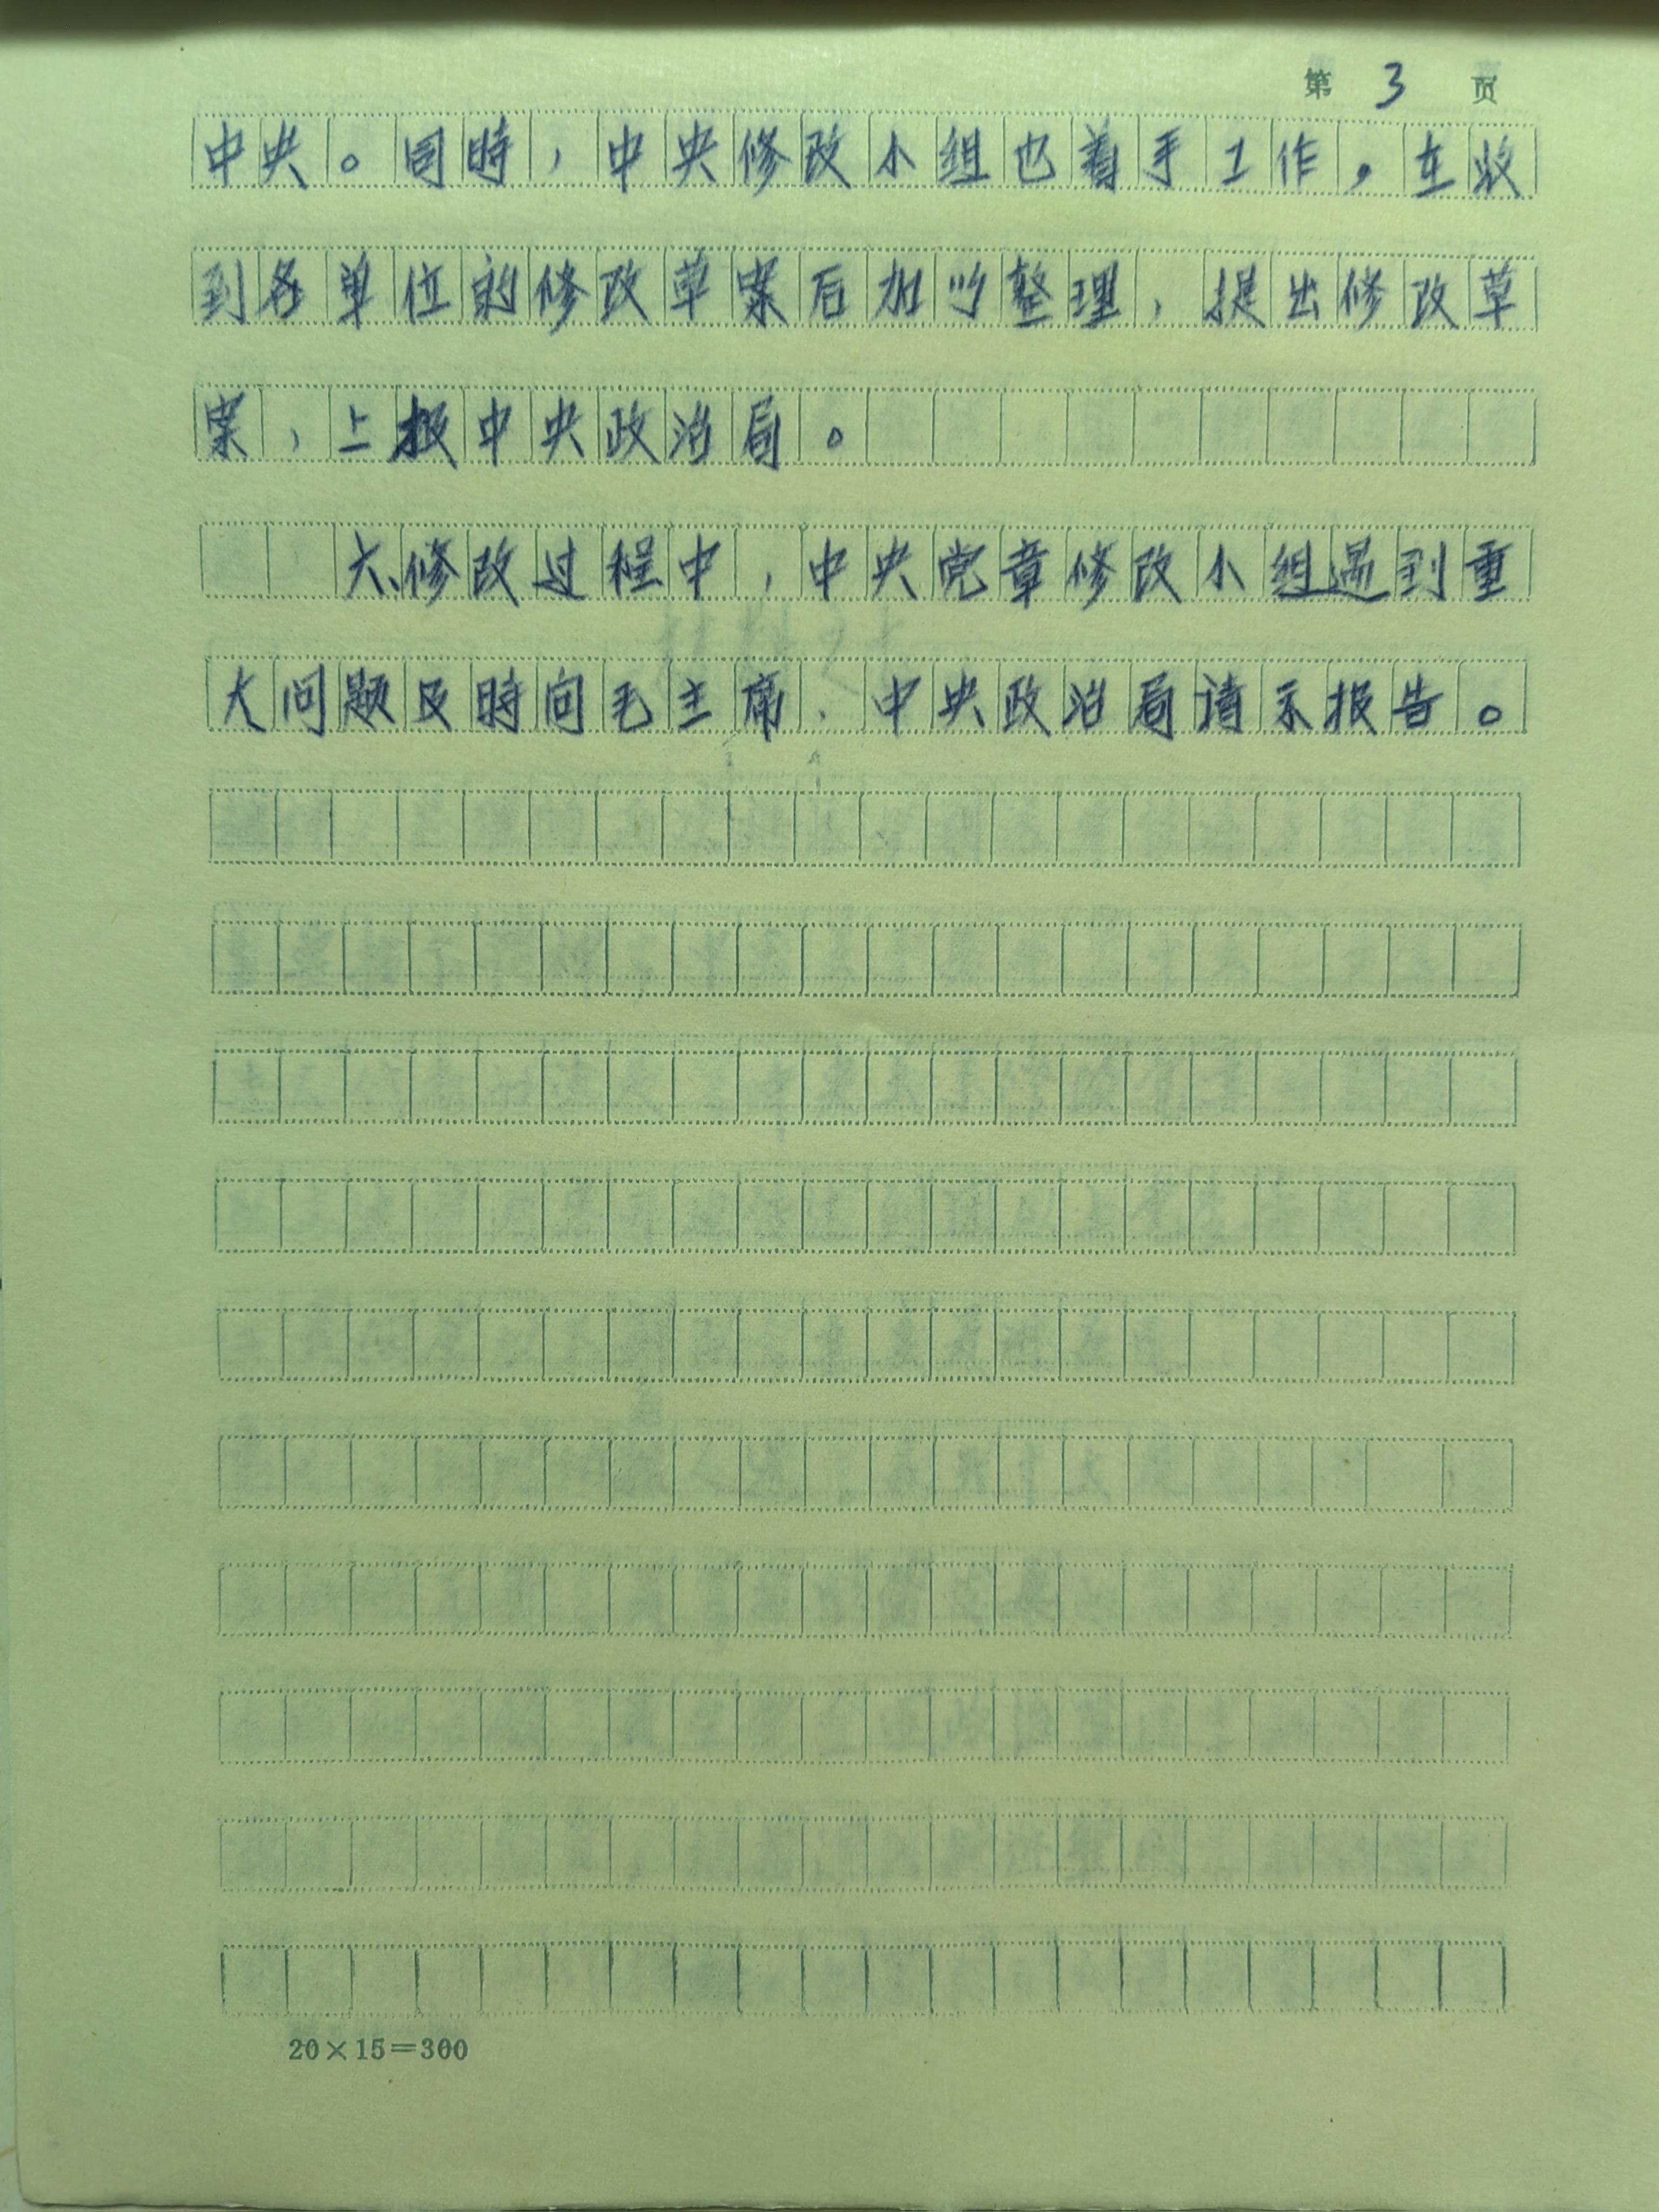 第 3 页
中央。同時，中央修改小组也着手工作，在收
到各单位的修改草案后加以整理，提出修改草
案，上报中央政治局。
六、修改过程中，中央党章修改小组遇到重
大问题及時向毛主席、中央政治局请示报告。
20×15=300